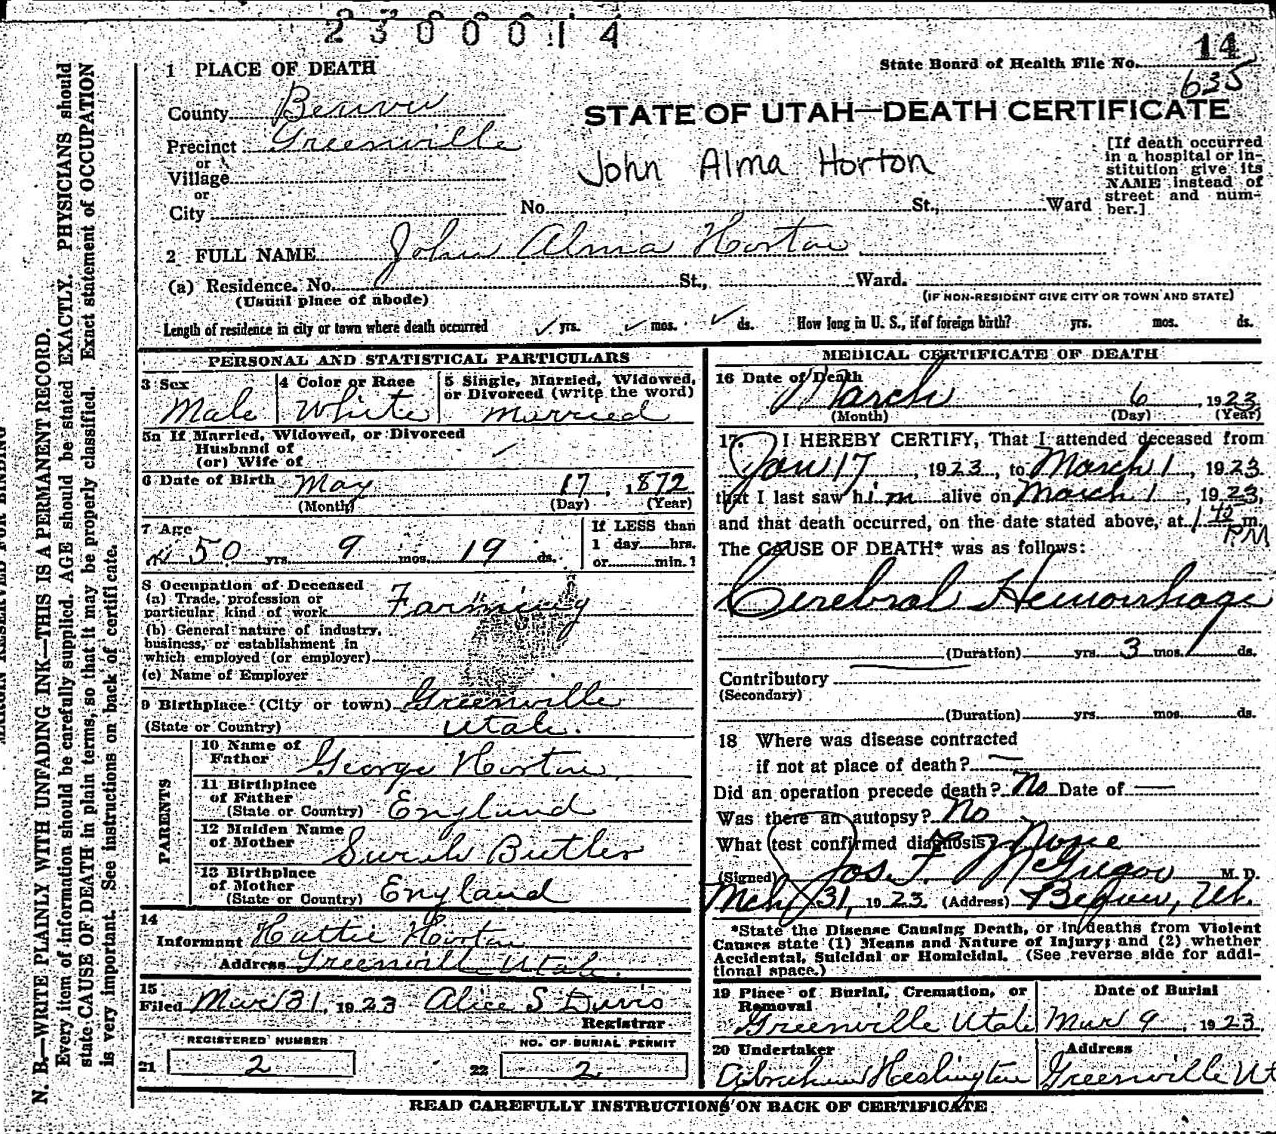 2300014
14
State Board of Health File No.
635
1 PLACE OF DEATH
County Beaver
STATE OF UTAH—DEATH CERTIFICATE
Precinct Greenville
or
Village
or
City
John Alma Horton
No. St., Ward
[If death occurred
in a hospital or in-
stitution give its
NAME instead of
street and num-
ber.]
2 FULL NAME John Alma Horton
(a) Residence. No. St., Ward.
(Usual place of abode)
(IF NON-RESIDENT GIVE CITY OR TOWN AND STATE)
Length of residence in city or town where death occurred ✓ yrs. ✓ mos. ✓ ds. How long in U. S., if of foreign birth? yrs. mos. ds.
PERSONAL AND STATISTICAL PARTICULARS
3 Sex
Male
4 Color or Race
White
5 Single, Married, Widowed,
or Divorced (write the word)
Married
5a If Married, Widowed, or Divorced
Husband of
(or) Wife of
6 Date of Birth May 17, 1872
(Month) (Day) (Year)
7 Age
50 yrs. 9 mos. 19 ds.
If LESS than
1 day hrs.
or min. ?
8 Occupation of Deceased
(a) Trade, profession or
particular kind of work Farming
(b) General nature of industry,
business, or establishment in
which employed (or employer)
(c) Name of Employer
9 Birthplace (City or town) Greenville
(State or Country) Utah.
PARENTS
10 Name of
Father George Horton
11 Birthplace
of Father
(State or Country) England
12 Maiden Name
of Mother Sarah Butler
13 Birthplace
of Mother
(State or Country) England
14
Informant Hattie Horton
Address Greenville Utah.
15
Filed Mar 31 1923 Alice S Davis
Registrar
REGISTERED NUMBER
21 2
NO. OF BURIAL PERMIT
22 2
MEDICAL CERTIFICATE OF DEATH
16 Date of Death
March 6 1923
(Month) (Day) (Year)
17 I HEREBY CERTIFY, That I attended deceased from
Jan 17, 1923, to March 1, 1923
that I last saw him alive on March 1, 1923,
and that death occurred, on the date stated above, at 1 40 m.
PM
The CAUSE OF DEATH* was as follows:
Cerebral Hemorrhage
(Duration) yrs. 3 mos. ds.
Contributory
(Secondary)
(Duration) yrs. mos. ds.
18 Where was disease contracted
if not at place of death? —
Did an operation precede death? No Date of —
Was there an autopsy? No
What test confirmed diagnosis? None
(Signed) Jos. F. McGregor M. D.
Mch 31, 1923 (Address) Beaver, Ut.
*State the Disease Causing Death, or in deaths from Violent
Causes state (1) Means and Nature of Injury; and (2) whether
Accidental, Suicidal or Homicidal. (See reverse side for addi-
tional space.)
19 Place of Burial, Cremation, or
Removal
Greenville Utah
Date of Burial
Mar 9, 1923
20 Undertaker
Abraham Heslington
Address
Greenville Ut
READ CAREFULLY INSTRUCTIONS ON BACK OF CERTIFICATE
MARGIN RESERVED FOR BINDING
N. B.—WRITE PLAINLY WITH UNFADING INK—THIS IS A PERMANENT RECORD.
Every item of information should be carefully supplied. AGE should be stated EXACTLY. PHYSICIANS should
state CAUSE OF DEATH in plain terms, so that it may be properly classified. Exact statement of OCCUPATION
is very important. See instructions on back of certificate.